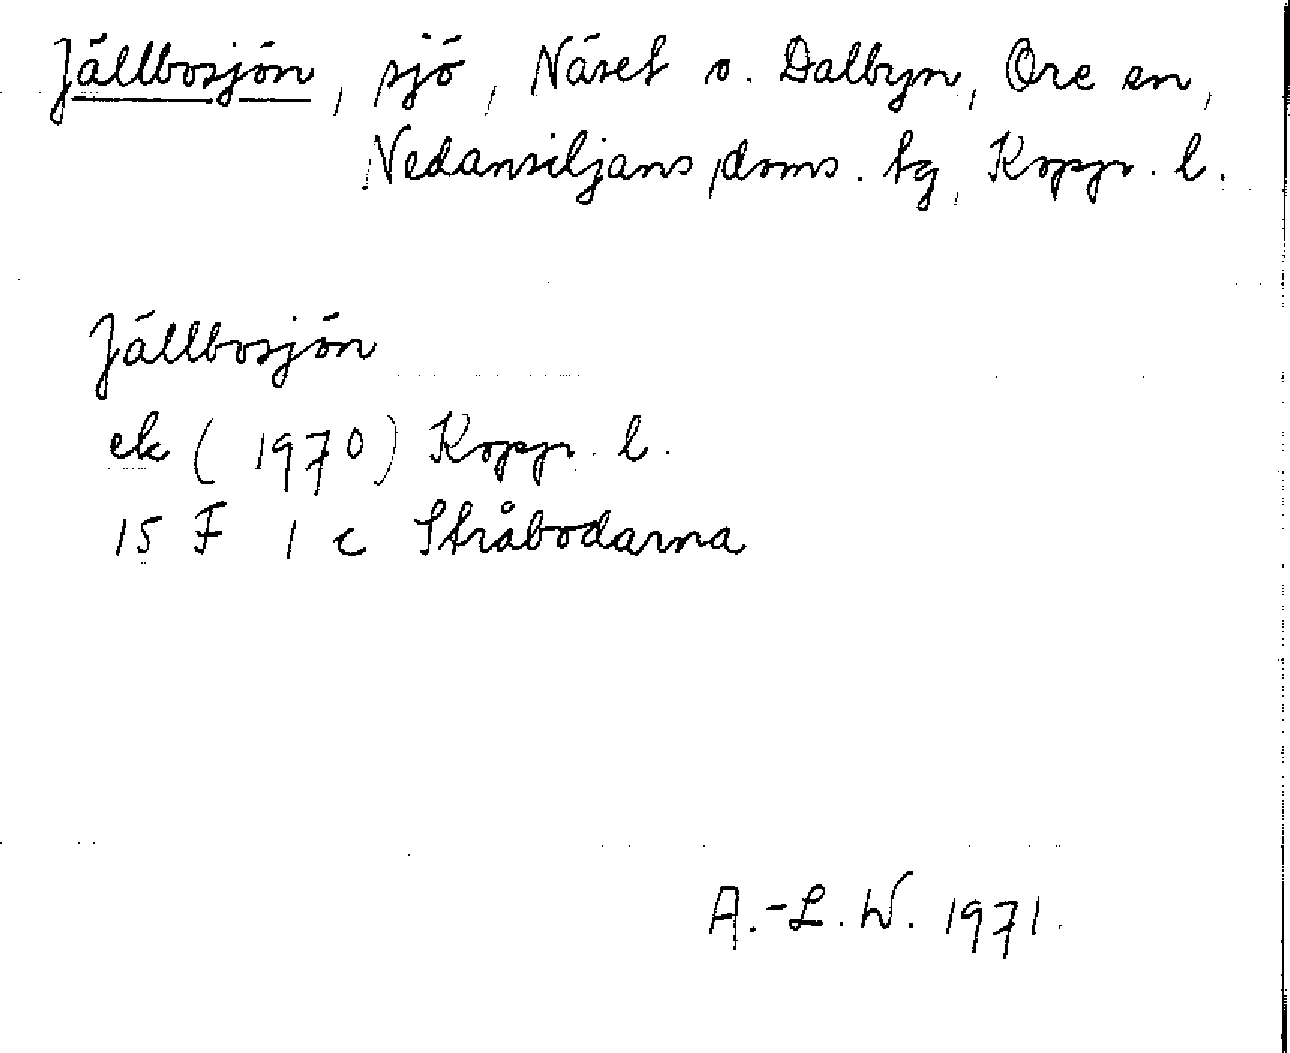 Jällbosjön, sjö, Näset o. Dalbyn, Ore sn,
Nedansiljans doms. tg, Kopp. l.
Jällbosjön
ek (1970) Kopp. l.
15 F 1 c Stråbodarna
A.-L. W. 1971.